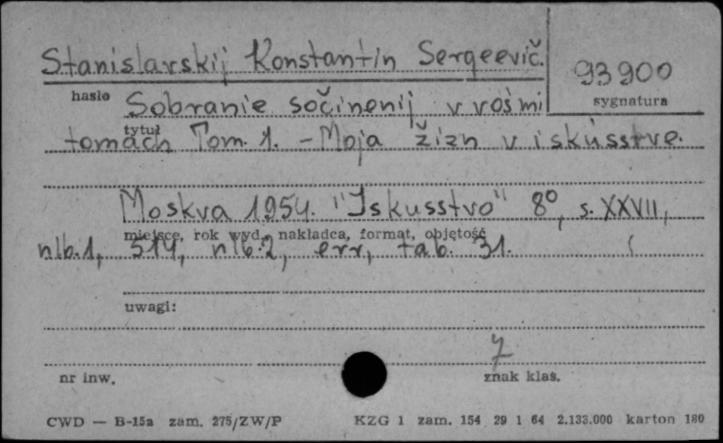 Stanislavskij Konstantin Sergeevič.
93900
hasło
sygnatura
Sobranie sočinenij v vośmi
tytuł
tomach Tom. 1. - Moja žizn v iskusstve.
Moskva 1954. "Iskusstvo" 8°, s. XXVII,
miejsce, rok wyd., nakładca, format, objętość
nlb. 1, 514, nlb. 2, err, tab. 31.
uwagi:
7
nr inw.
znak klas.
CWD — B-15a zam. 275/ZW/P
KZG 1 zam. 154 29 1 64 2.133.000 karton 180